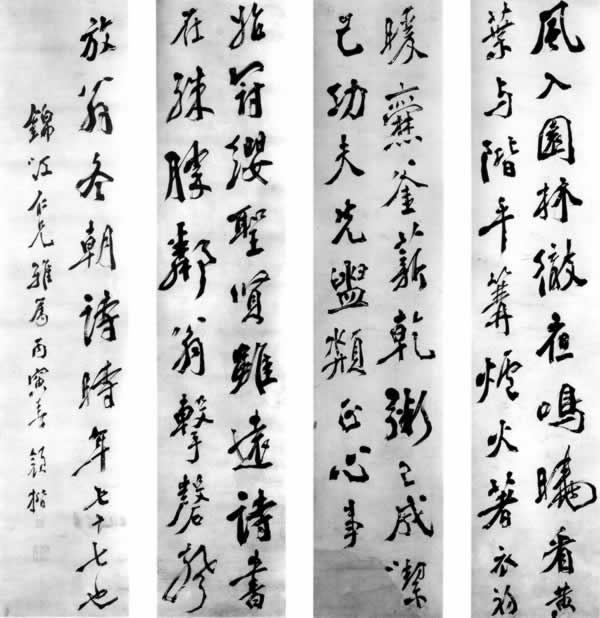 風入園林徹夜鳴曉看黃
葉与階平篝爐火著衣初
暖爨釜薪乾粥已成潔
己功夫先盥頮正心事
始冠纓聖賢雖遠詩書
在殊勝鄰翁擊磬聲
放翁冬朝詩時年七十七也
錦江仁兄雅屬丙寅春